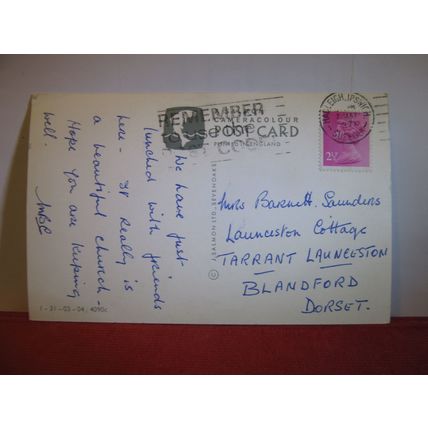 REMEMBER
to use the
POST CODE
HADLEIGH, IPSWICH
2½P
CAMERACOLOUR
POST CARD
PRINTED IN ENGLAND
We have just
lunched with friends
here - It Really is
a beautiful church -
Hope you are keeping
well.
© JARROLD LTD. SEVENOAKS
Mrs Barnett. Saunders
Launceston Cottage
TARRANT LAUNCESTON
BLANDFORD
DORSET.
1-21-03-04, 4090c